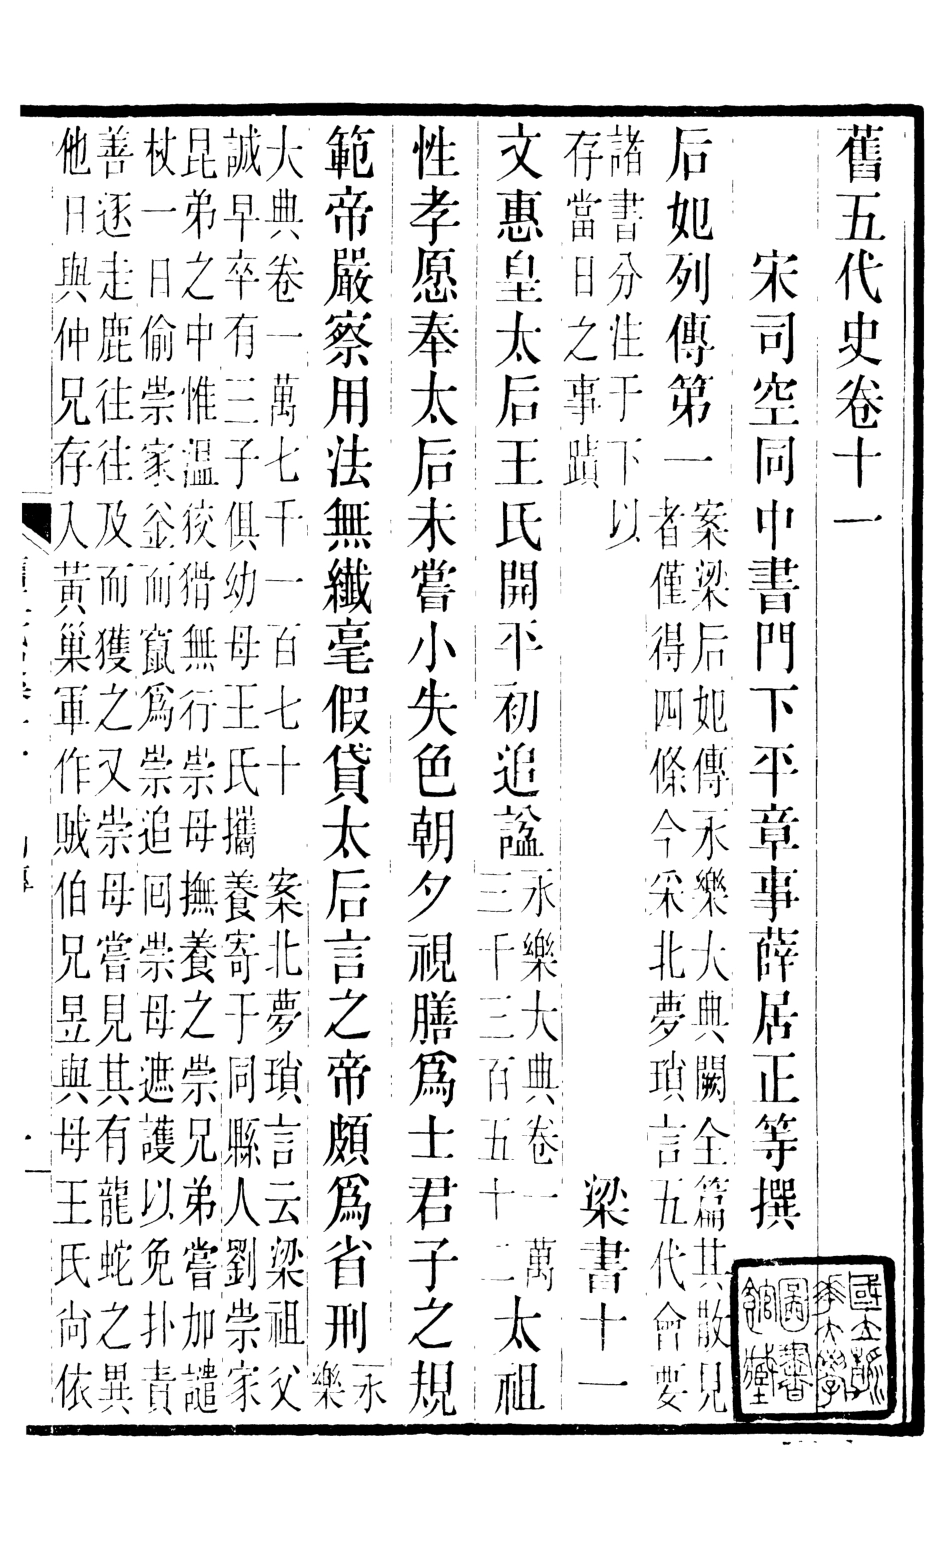 舊五代史卷十一
宋司空同中書門下平章事薛居正等撰
后妃列傳第一
案梁后妃傳永樂大典闕全篇其散見
者僅得四條今采北夢瑣言五代會要
諸書分注于下以
存當日之事蹟
梁書十一
文惠皇太后王氏開平初追諡
永樂大典卷一萬
三千三百五十二
太祖
性孝愿奉太后未嘗小失色朝夕視膳爲士君子之規
範帝嚴察用法無纖毫假貸太后言之帝頗爲省刑
永
樂
大典卷一萬七千一百七十 案北夢瑣言云梁祖父
誠早卒有三子俱幼母王氏攜養寄于同縣人劉崇家
昆弟之中惟温狡猾無行崇母撫養之崇兄弟嘗加譴
杖一日偷崇家釜而竄爲崇追回崇母遮護以免扑責
善逐走鹿往往及而獲之又崇母嘗見其有龍蛇之異
他日與仲兄存入黃巢軍作賊伯兄昱與母王氏尚依